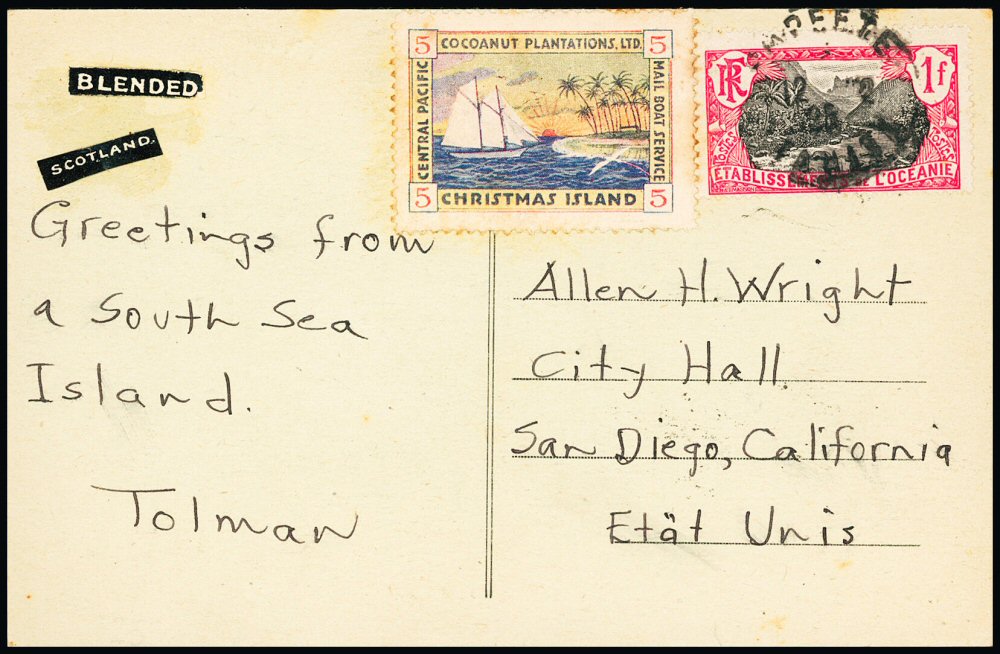 BLENDED
SCOTLAND.
5 COCOANUT PLANTATIONS, LTD. 5
CENTRAL PACIFIC
MAIL BOAT SERVICE
5 CHRISTMAS ISLAND 5
PAPEETE
RF
1f
POSTES
POSTES
ETABLISSEMENTS DE L'OCEANIE
Greetings from
a South Sea
Island.
Tolman
Allen H. Wright
City Hall
San Diego, California
Etät Unis